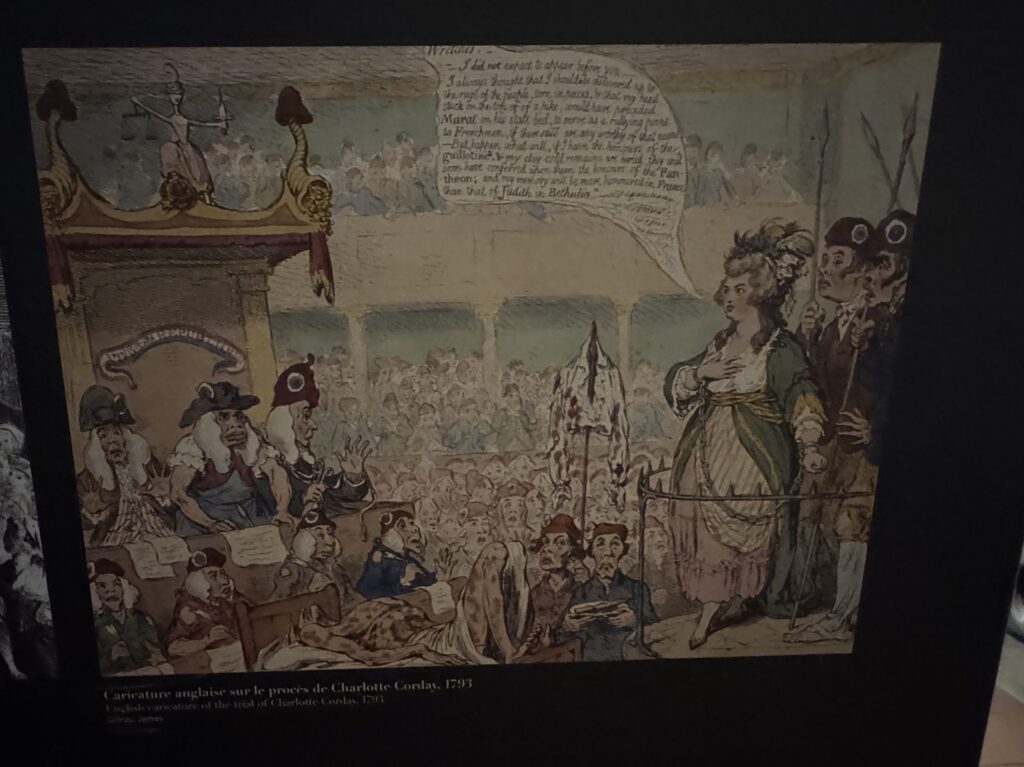 Wretches, -
— I did not expect to appear before you
I always thought that I should be delivered up to
the rage of the people, torn in pieces, & that my head
stuck on the top of of a pike, would have preceded
Marat on his state bed, to serve as a rallying point
to Frenchmen, if there still are any worthy of that name
— But, happen what will, if I have the honours of the
guillotine, & my clay cold remains are buried, they will
soon have conferred upon them the honours of the Pan-
theon; and my memory will be more honoured in France
than that of Judith in Bethulia
Caricature anglaise sur le procès de Charlotte Corday, 1793
English caricature of the trial of Charlotte Corday, 1793
Gillray, James